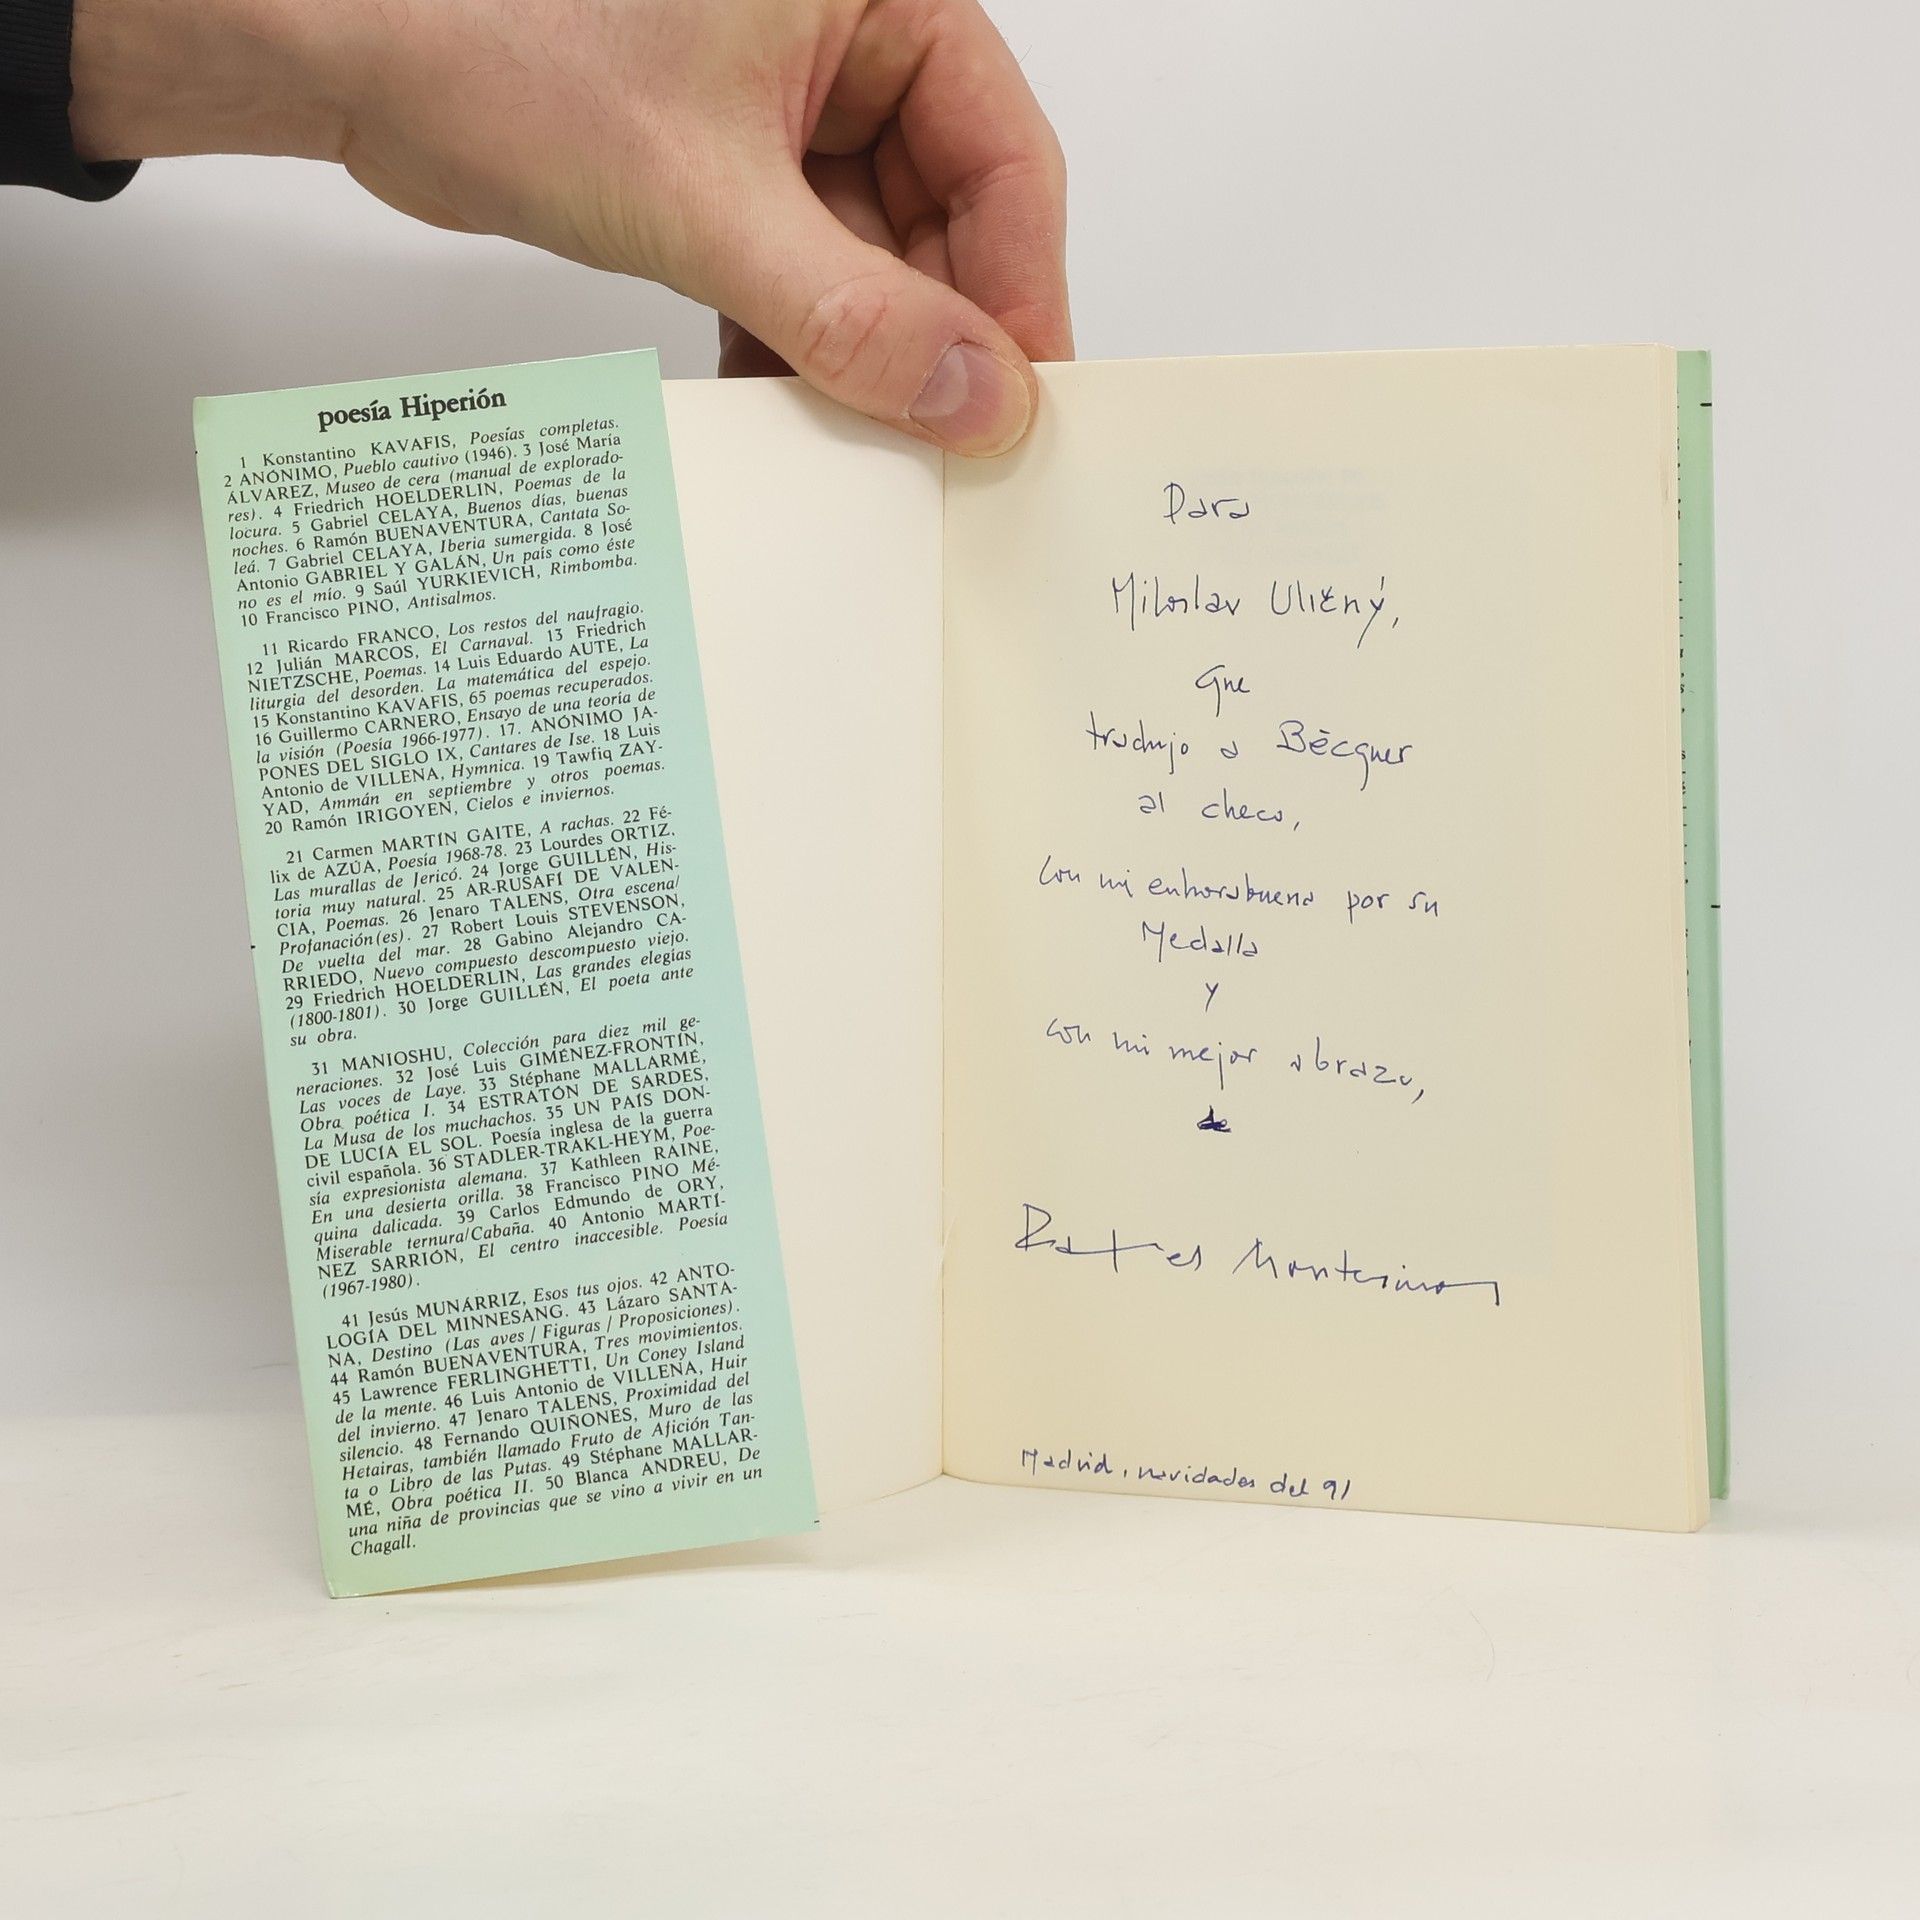 poesía Hiperión
1 Konstantino KAVAFIS, Poesías completas.
2 ANÓNIMO, Pueblo cautivo (1946). 3 José María
ÁLVAREZ, Museo de cera (manual de explorado-
res). 4 Friedrich HOELDERLIN, Poemas de la
locura. 5 Gabriel CELAYA, Buenos días, buenas
noches. 6 Ramón BUENAVENTURA, Cantata So-
leá. 7 Gabriel CELAYA, Iberia sumergida. 8 José
Antonio GABRIEL Y GALÁN, Un país como éste
no es el mío. 9 Saúl YURKIEVICH, Rimbomba.
10 Francisco PINO, Antisalmos.
11 Ricardo FRANCO, Los restos del naufragio.
12 Julián MARCOS, El Carnaval. 13 Friedrich
NIETZSCHE, Poemas. 14 Luis Eduardo AUTE, La
liturgia del desorden. La matemática del espejo.
15 Konstantino KAVAFIS, 65 poemas recuperados.
16 Guillermo CARNERO, Ensayo de una teoría de
la visión (Poesía 1966-1977). 17. ANÓNIMO JA-
PONES DEL SIGLO IX, Cantares de Ise. 18 Luis
Antonio de VILLENA, Hymnica. 19 Tawfiq ZAY-
YAD, Ammán en septiembre y otros poemas.
20 Ramón IRIGOYEN, Cielos e inviernos.
21 Carmen MARTÍN GAITE, A rachas. 22 Fé-
lix de AZÚA, Poesía 1968-78. 23 Lourdes ORTIZ,
Las murallas de Jericó. 24 Jorge GUILLÉN, His-
toria muy natural. 25 AR-RUSAFÍ DE VALEN-
CIA, Poemas. 26 Jenaro TALENS, Otra escena/
Profanación(es). 27 Robert Louis STEVENSON,
De vuelta del mar. 28 Gabino Alejandro CA-
RRIEDO, Nuevo compuesto descompuesto viejo.
29 Friedrich HOELDERLIN, Las grandes elegías
(1800-1801). 30 Jorge GUILLÉN, El poeta ante
su obra.
31 MANIOSHU, Colección para diez mil ge-
neraciones. 32 José Luis GIMÉNEZ-FRONTÍN,
Las voces de Laye. 33 Stéphane MALLARMÉ,
Obra poética I. 34 ESTRATÓN DE SARDES,
La Musa de los muchachos. 35 UN PAÍS DON-
DE LUCÍA EL SOL. Poesía inglesa de la guerra
civil española. 36 STADLER-TRAKL-HEYM, Poe-
sía expresionista alemana. 37 Kathleen RAINE,
En una desierta orilla. 38 Francisco PINO Mé-
quina dalicada. 39 Carlos Edmundo de ORY,
Miserable ternura/Cabaña. 40 Antonio MARTÍ-
NEZ SARRIÓN, El centro inaccesible. Poesía
(1967-1980).
41 Jesús MUNÁRRIZ, Esos tus ojos. 42 ANTO-
LOGÍA DEL MINNESANG. 43 Lázaro SANTA-
NA, Destino (Las aves / Figuras / Proposiciones).
44 Ramón BUENAVENTURA, Tres movimientos.
45 Lawrence FERLINGHETTI, Un Coney Island
de la mente. 46 Luis Antonio de VILLENA, Huir
del invierno. 47 Jenaro TALENS, Proximidad del
silencio. 48 Fernando QUIÑONES, Muro de las
Hetairas, también llamado Fruto de Afición Tan-
ta o Libro de las Putas. 49 Stéphane MALLAR-
MÉ, Obra poética II. 50 Blanca ANDREU, De
una niña de provincias que se vino a vivir en un
Chagall.
Para
Miloslav Uličný,
que
tradujo a Bécquer
al checo,
con mi enhorabuena por su
Medalla
y
con mi mejor abrazo,
de
Rafael Montesinos
Madrid, navidades del 91